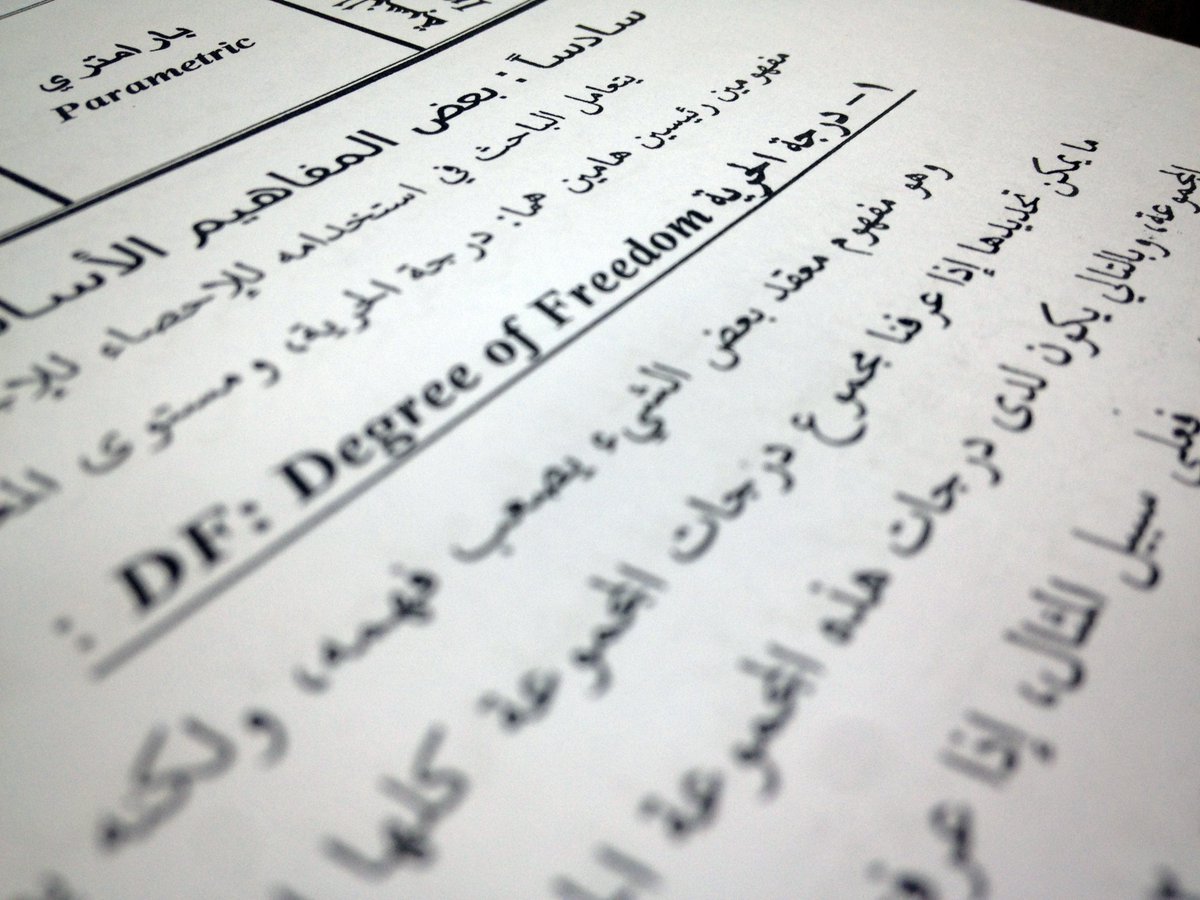 بارامتري
Parametric
سادساً : بعض المفاهيم
يتعامل الباحث في استخدامه للإحصاء
مفهومين رئيسين هامين هما: درجة الحرية، ومستوى
١- درجة الحرية DF: Degree of Freedom :
وهو مفهوم معقد بعض الشيء يصعب فهمه، ولكنه
ما يمكن تحديدها إذا عرفنا مجموع درجات المجموعة كلها
المجموعة، وبالتالي يكون لدى درجات هذه المجموعة
فعلى سبيل المثال، إذا